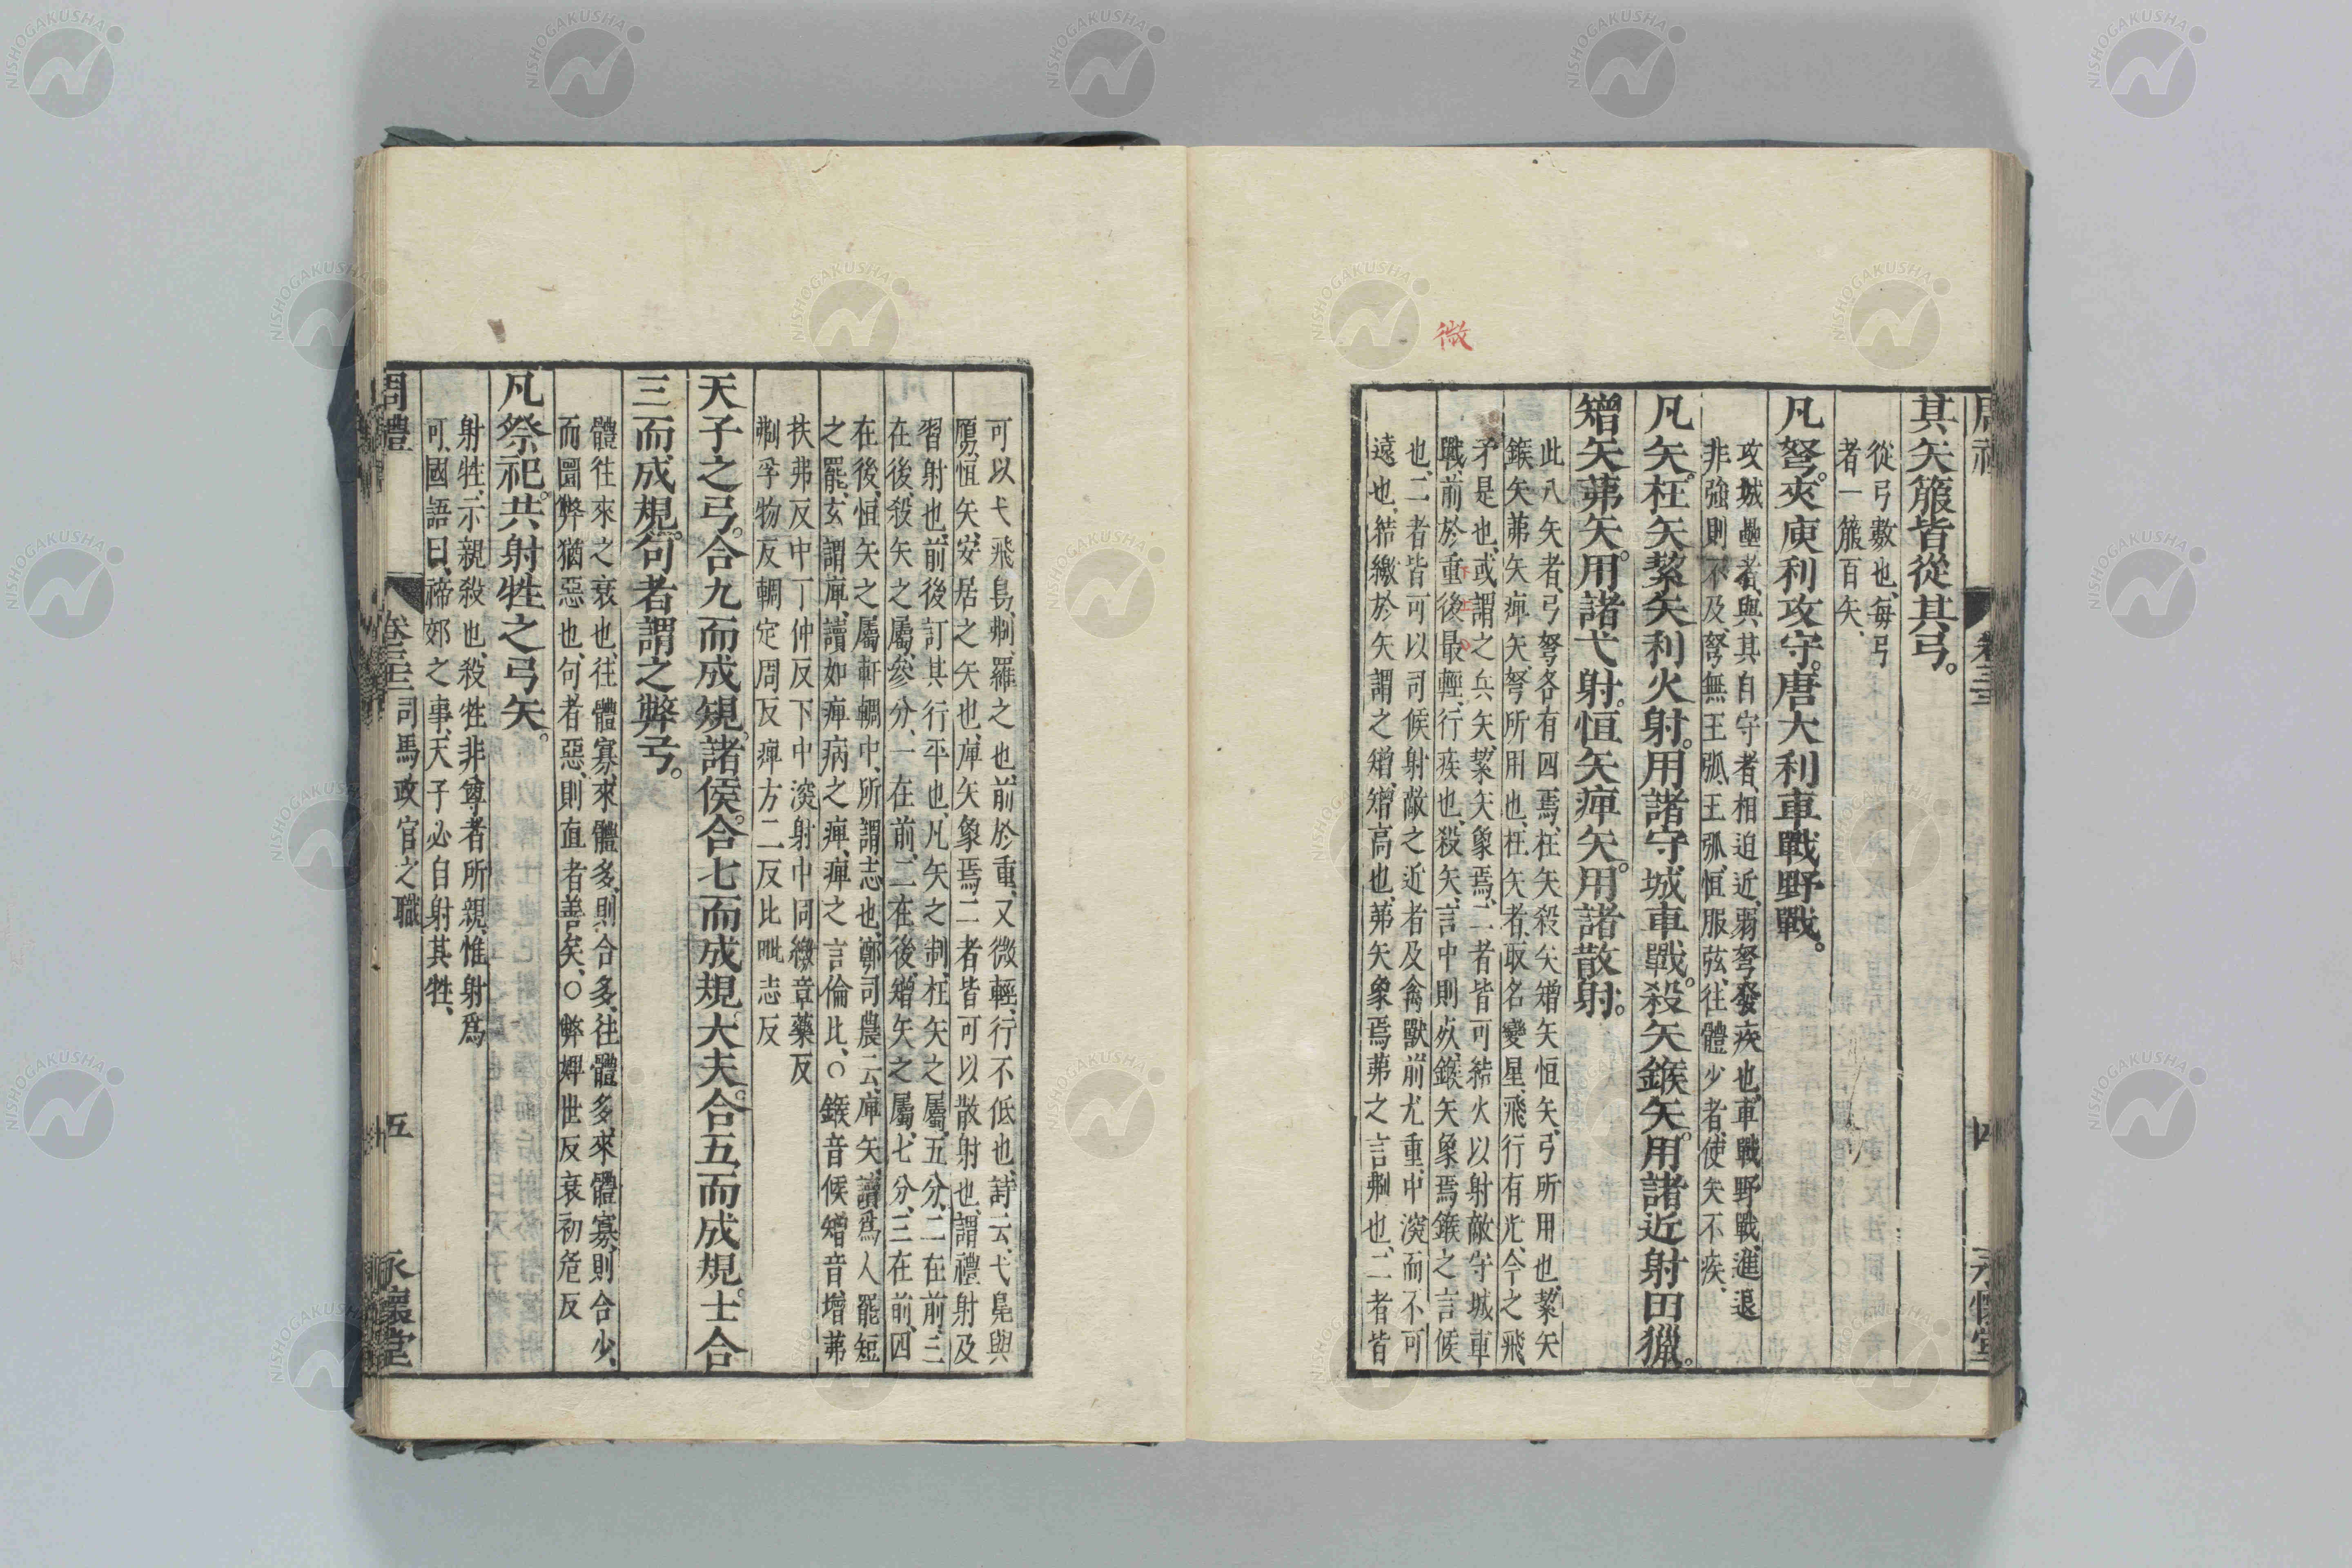 其矢箙皆從其弓。
從弓數也、每弓
者一箙百矢、
凡弩。夾庾利攻守。唐大利車戰野戰。
攻城壘者、與其自守者、相迫近、弱弩發疾也、車戰野戰、進退
非強則不及、弩無王弧、王弧、恒服弦、往體少者、使矢不疾、
凡矢。枉矢絜矢利火射。用諸守城車戰。殺矢鍭矢。用諸近射田獵。
矰矢茀矢。用諸弋射。恒矢痺矢。用諸散射。
此八矢者、弓弩各有四焉、枉矢殺矢矰矢恒矢、弓所用也、絜矢
鍭矢茀矢痺矢、弩所用也、枉矢者、取名變星、飛行有光、今之飛
矛是也、或謂之兵矢、絜矢象焉、二者皆可結火以射敵守城車
戰、前於重後最輕、行疾也、殺矢、言中則死、鍭矢象焉、鍭之言候
也、二者皆可以司候射敵之近者及禽獸、前尤重、中深而不可
遠也、結繳於矢謂之矰、矰高也、茀矢象焉、茀之言刜也、二者皆
微
周禮
卷三十二
四
永懷堂
可以弋飛鳥、刜、羅之也、前於重、又微輕、行不低也、詩云、弋鳧與
鴈、恒矢、安居之矢也、庳矢象焉、二者皆可以散射也、謂禮射及
習射也、前後訂其行平也、凡矢之制、枉矢之屬、五分、二在前、三
在後、殺矢之屬、參分、一在前、二在後、矰矢之屬、七分、三在前、四
在後、恒矢之屬、軒輖中、所謂志也、鄭司農云、庳矢、讀爲人罷短
之罷、玄謂庳、讀如痺病之痺、痺之言倫比、○鍭音候矰音增茀
扶弗反中丁仲反下中深射中同繳章藥反
刜孚物反輖定周反痺方二反比毗志反
天子之弓。合九而成規。諸侯。合七而成規。大夫。合五而成規。士合
三而成規。句者謂之弊弓。
體往來之衰也、往體寡、來體多、則合多、往體多、來體寡、則合少、
而圜弊猶惡也、句者惡、則直者善矣、○弊婢世反衰初危反
凡祭祀。共射牲之弓矢。
射牲、示親殺也、殺牲非尊者所親、惟射爲
可、國語曰、禘郊之事、天子必自射其牲、
周禮
司馬政官之職
五
永懷堂